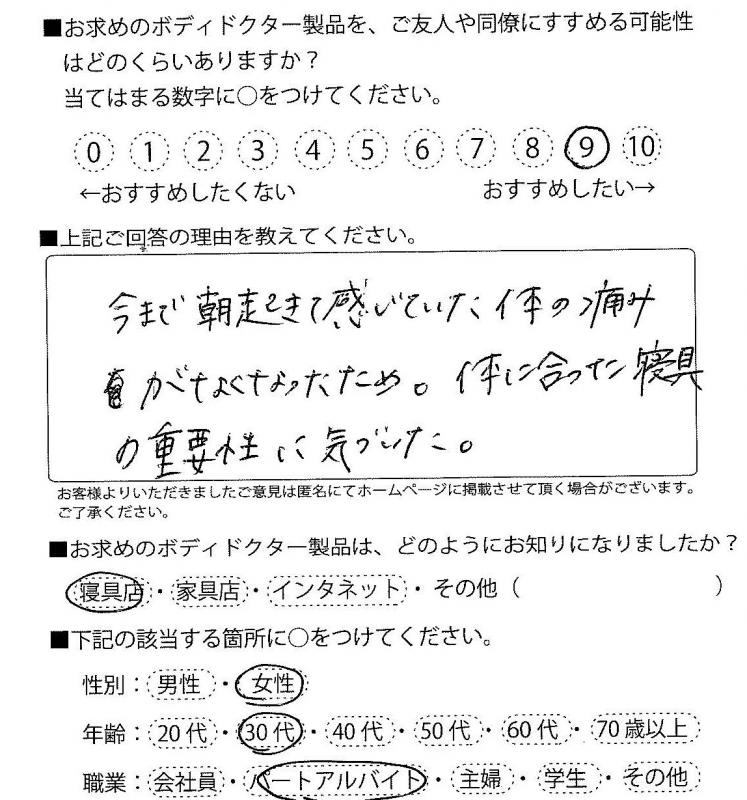 ■お求めのボディドクター製品を、ご友人や同僚にすすめる可能性
はどのくらいありますか？
当てはまる数字に○をつけてください。
0 1 2 3 4 5 6 7 8 9 10
←おすすめしたくない おすすめしたい→
■上記ご回答の理由を教えてください。
今まで朝起きて感じていた体の痛み
がなくなったため。体に合った寝具
の重要性に気づいた。
お客様よりいただきましたご意見は匿名にてホームページに掲載させて頂く場合がございます。
ご了承ください。
■お求めのボディドクター製品は、どのようにお知りになりましたか？
寝具店・家具店・インタネット・その他（ ）
■下記の該当する箇所に○をつけてください。
性別：男性・女性
年齢：20代・30代・40代・50代・60代・70歳以上
職業：会社員・パートアルバイト・主婦・学生・その他